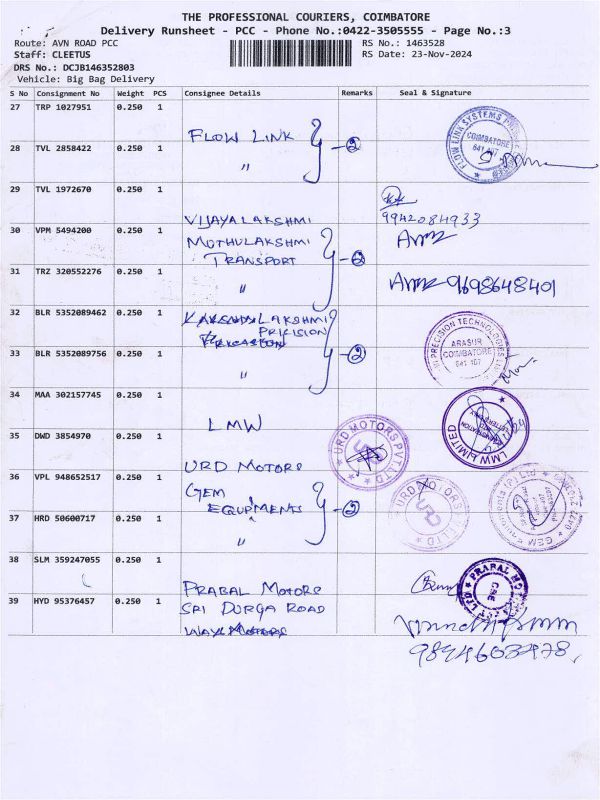 THE PROFESSIONAL COURIERS, COIMBATORE
Delivery Runsheet - PCC - Phone No.:0422-3505555 - Page No.:3
Route: AVN ROAD PCC
RS No.: 1463528
Staff: CLEETUS
RS Date: 23-Nov-2024
DRS No.: DCJB146352803
Vehicle: Big Bag Delivery
S No Consignment No Weight PCS Consignee Details Remarks Seal & Signature
27 TRP 1027951 0.250 1
FLOW LINK 2
28 TVL 2858422 0.250 1
"
FLOW LINK SYSTEMS
COIMBATORE
641 407
29 TVL 1972670 0.250 1
VIJAYALAKSHMI
9942084933
30 VPM 5494200 0.250 1
MOTHULAKSHMI
TRANSPORT 2
31 TRZ 320552276 0.250 1
"
9698648401
32 BLR 5352089462 0.250 1
LAKSHMI
PRICISION
33 BLR 5352089756 0.250 1
2
"
PRECISION TECHNOLOGIES
ARASUR
COIMBATORE
641 407
34 MAA 302157745 0.250 1
LMW
LMW LIMITED
35 DWD 3854970 0.250 1
URD MOTORS
URD MOTORS PVT LTD
URD
36 VPL 948652517 0.250 1
GEM
EQUPMENTS 2
37 HRD 50600717 0.250 1
"
URD MOTORS
URD
GEM Equipments (P) Ltd
38 SLM 359247055 0.250 1
PRABAL MOTORS
PRABAL MOTORS
39 HYD 95376457 0.250 1
SRI DURGA ROAD
WAYS